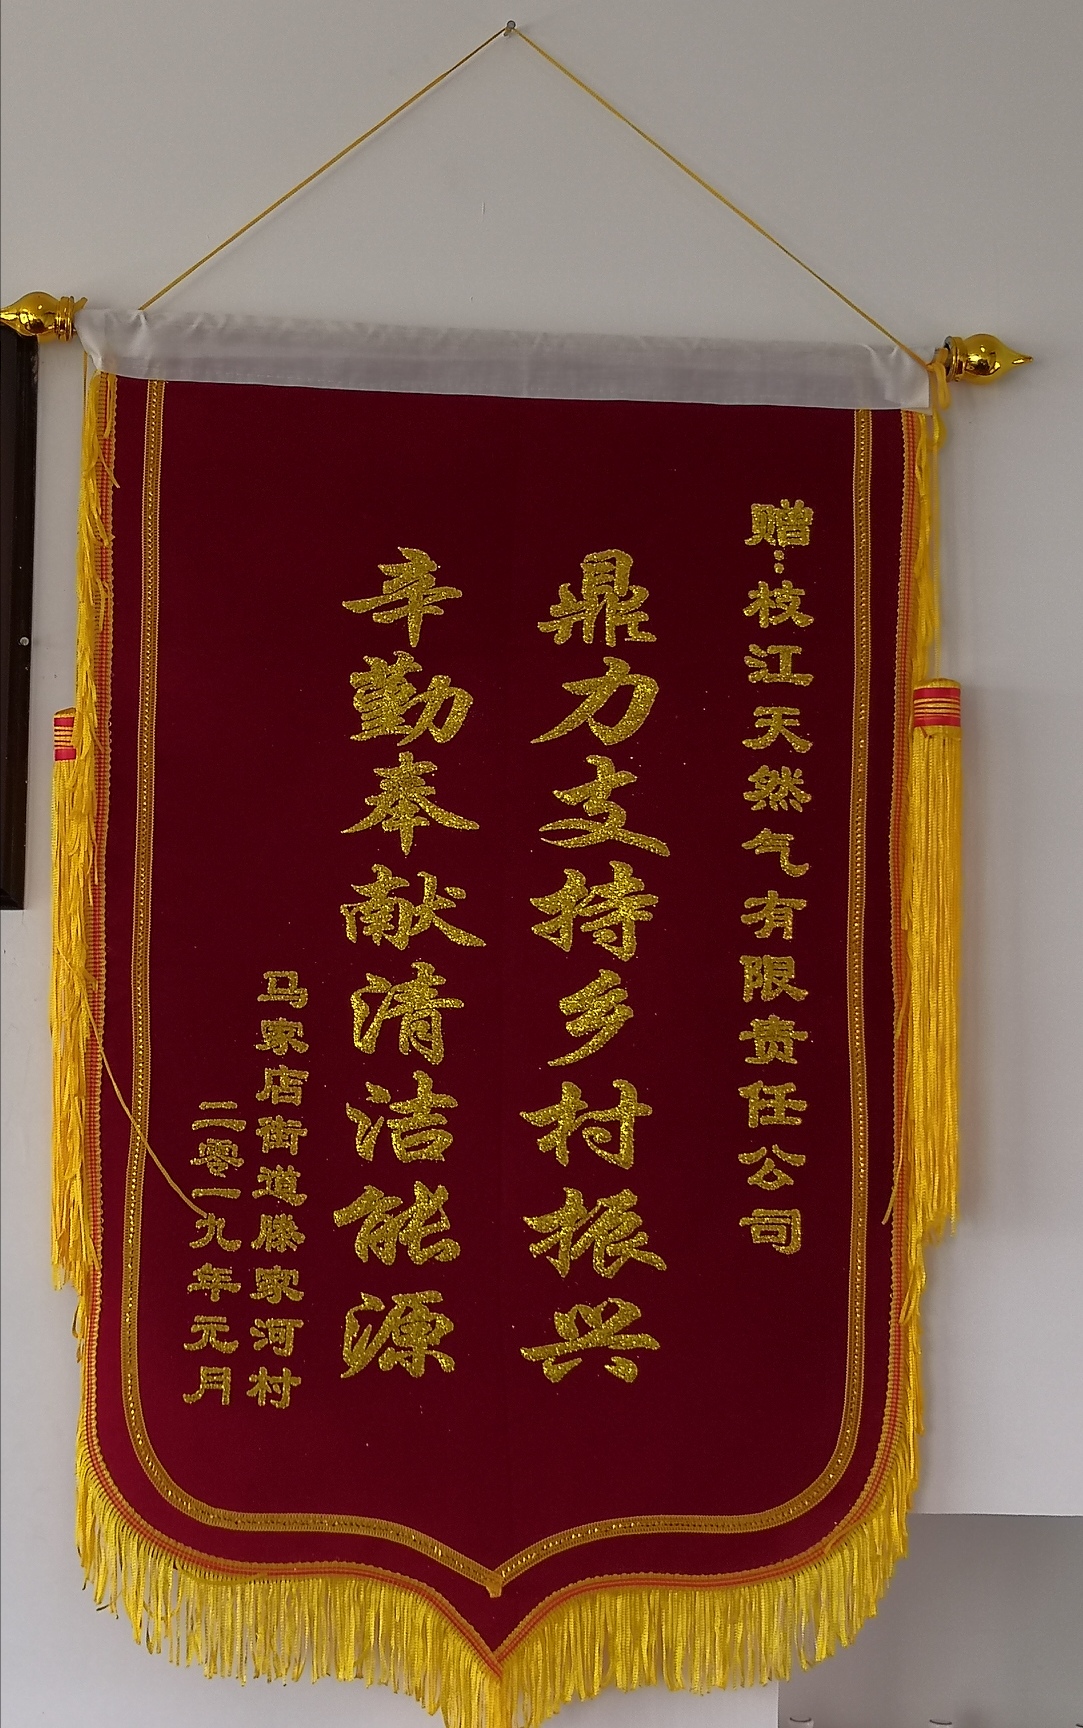 赠:枝江天然气有限责任公司
鼎力支持乡村振兴
辛勤奉献清洁能源
马家店街道滕家河村
二零一九年元月